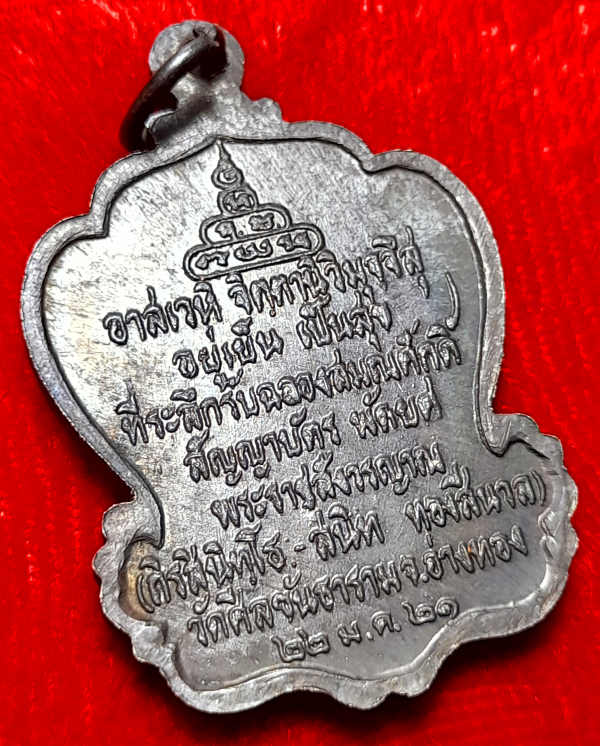 อาสเวหิ จิตฺตานิ วิมุจฺจึสุ
อยู่เย็น เป็นสุข
ที่ระลึกรับฉลองสมณศักดิ์
สัญญาบัตร พัดยศ
พระราชสังวรญาณ
(สิริสุนิทฺโธ:- สนิท ทองสีนวล)
วัดศีลขันธาราม จ.อ่างทอง
๒๒ ม.ค. ๒๑